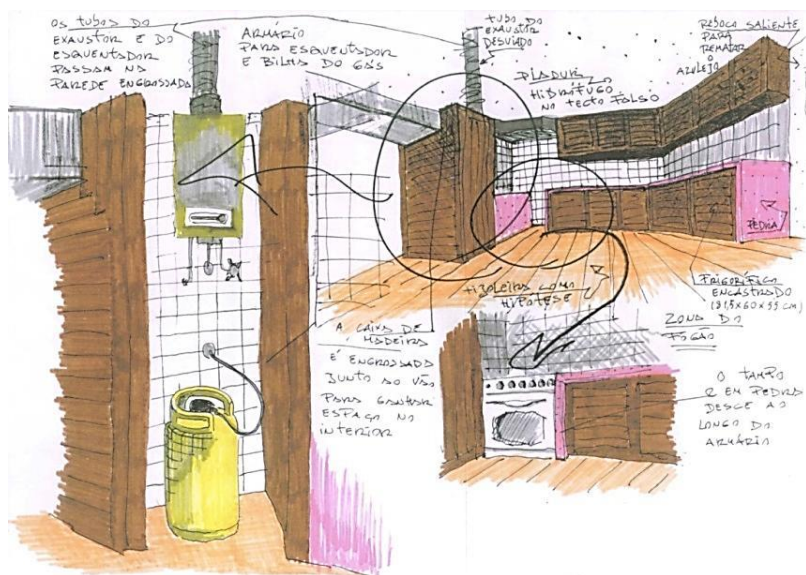 OS TUBOS DO
EXAUSTOR E DO
ESQUENTADOR
PASSAM NA
PAREDE ENGROSSADA
ARMÁRIO
PARA ESQUENTADOR
E BILHA DO GÁS
TUBO DO
EXAUSTOR
DESVIADO
PLADUR
HIDRÓFUGO
NO TECTO FALSO
REBOCO SALIENTE
PARA
REMATAR
O
AZULEJO
PEDRA
FRIGORÍFICO
ENCASTRADO
(81,5X60X55 CM)
TIJOLEIRA COMO
HIPÓTESE
ZONA DO
FOGÃO
A CAIXA DE
MADEIRA
É ENGROSSADA
JUNTO AO VÃO
PARA GANHAR
ESPAÇO NO
INTERIOR
O TAMPO
É EM PEDRA
DESCE AO
LONGO DO
ARMÁRIO